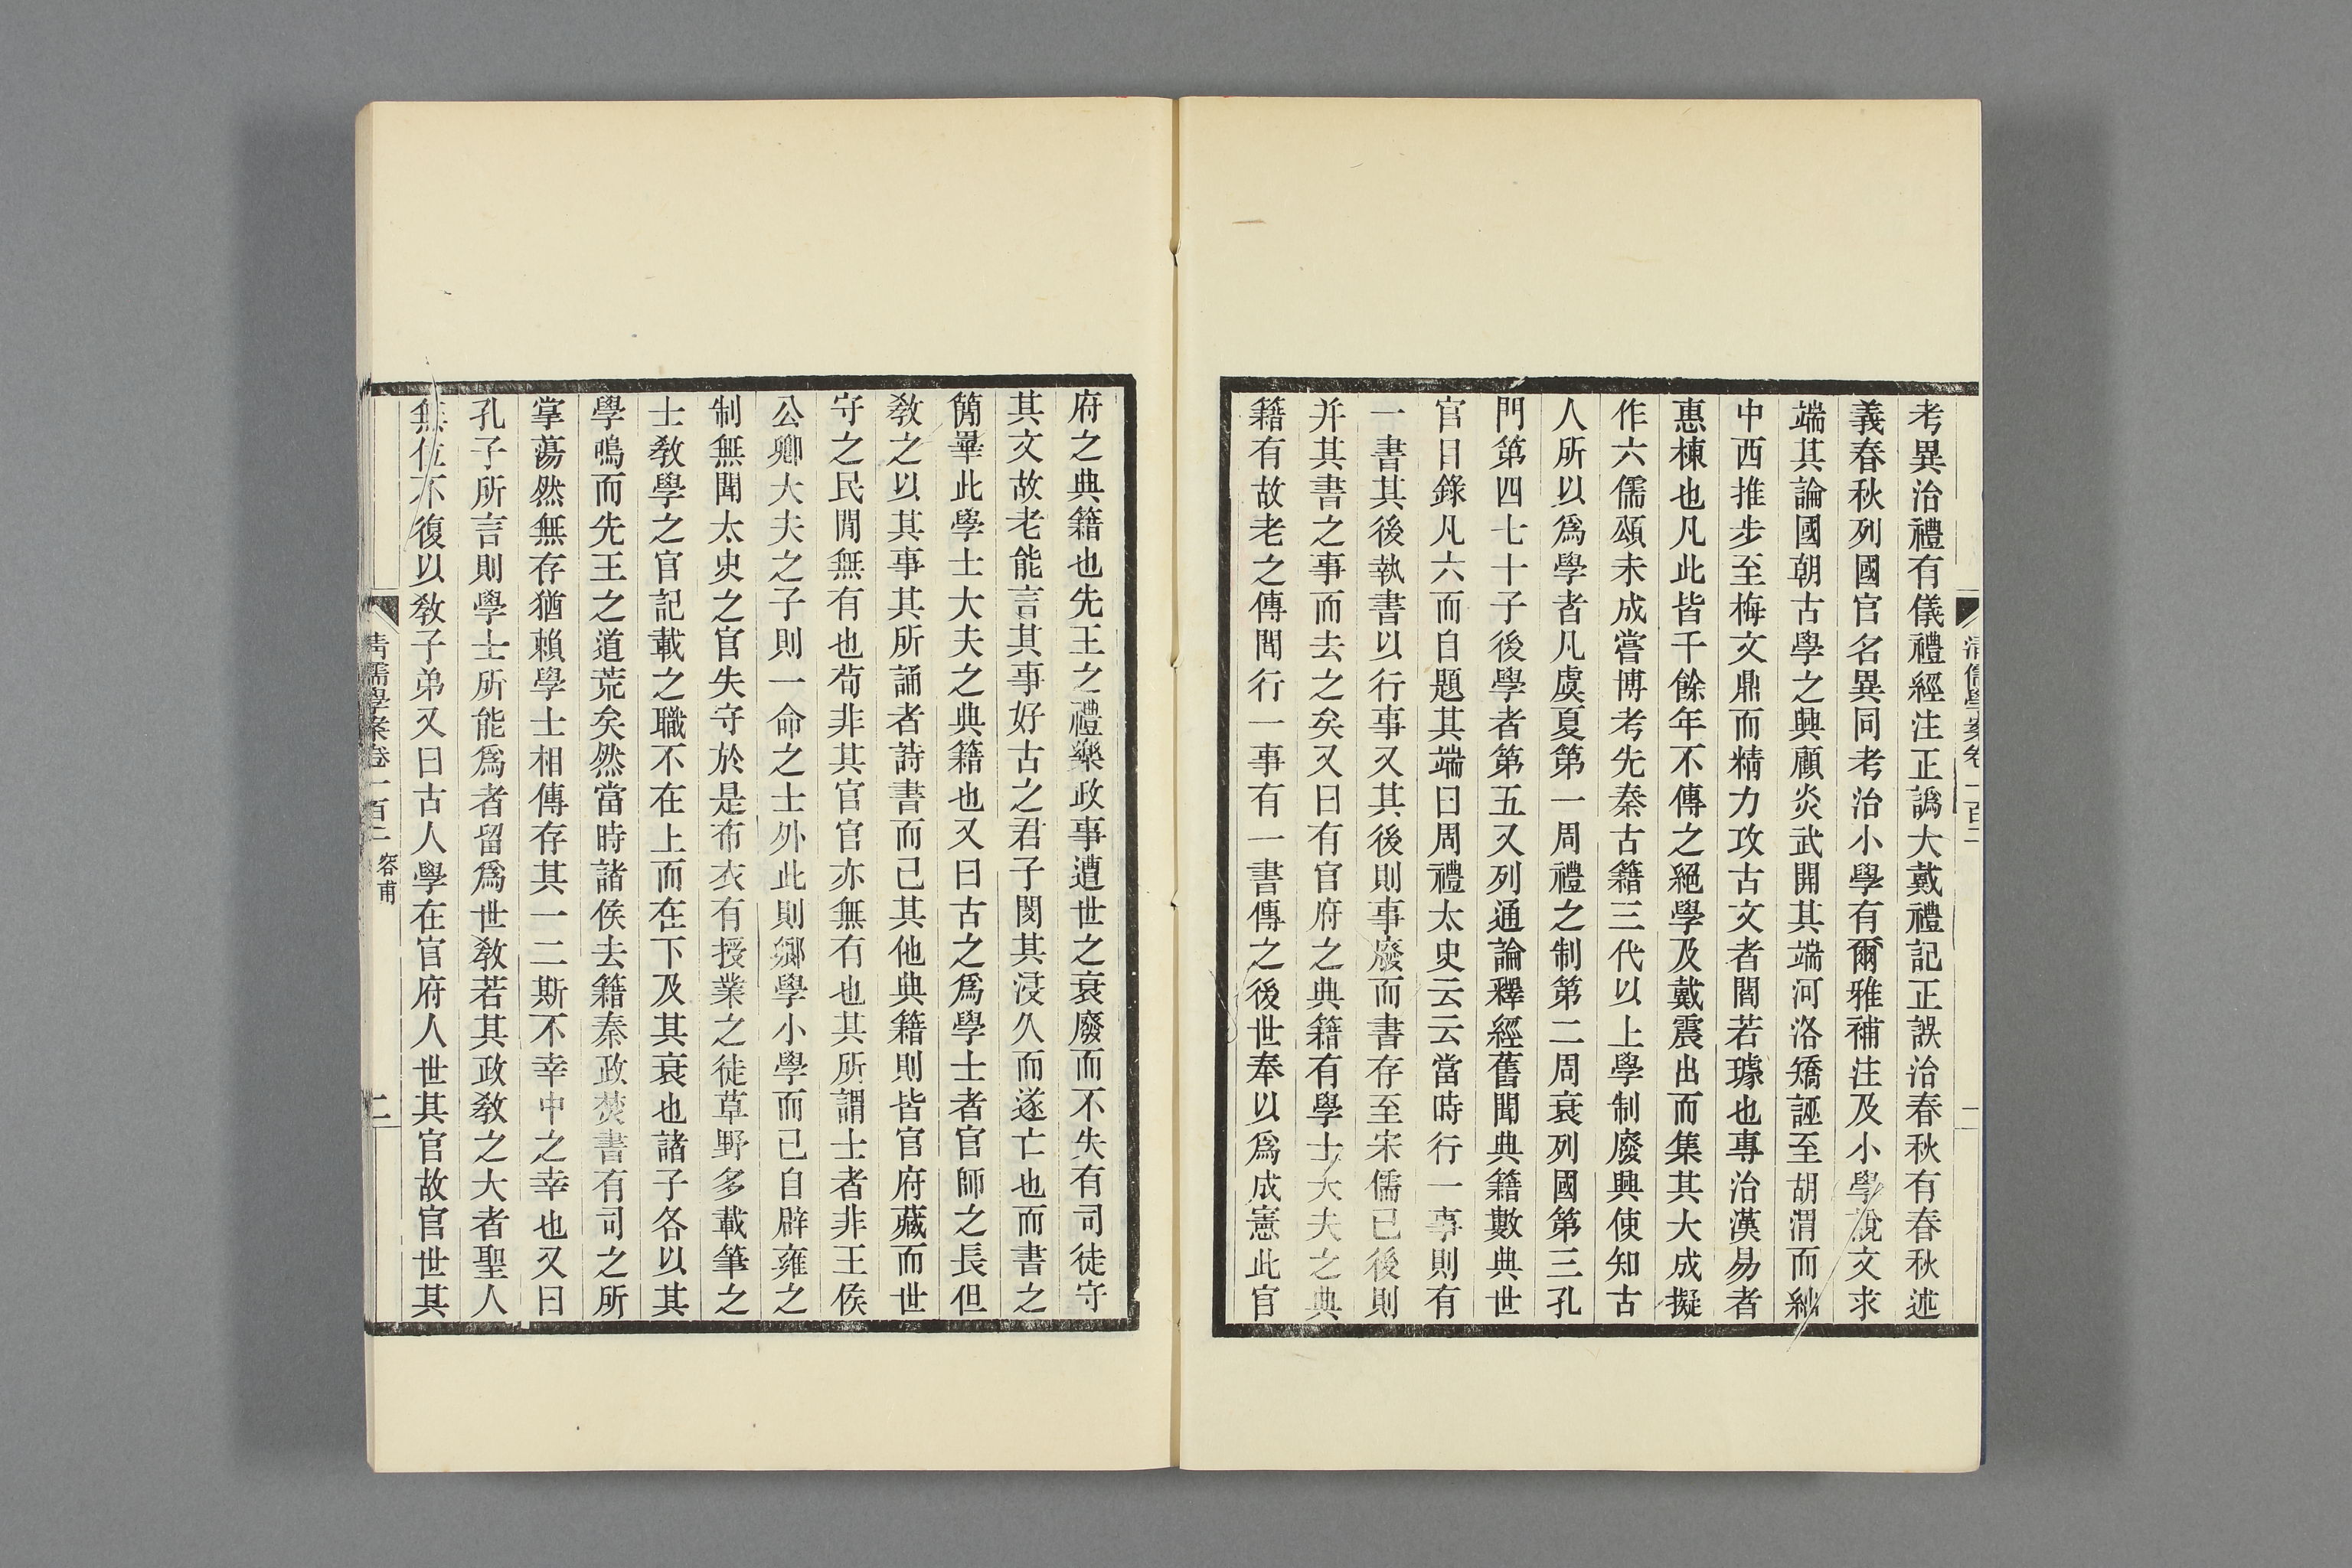 清儒學案卷一百二
二
考異治禮有儀禮經注正譌大戴禮記正誤治春秋有春秋述
義春秋列國官名異同考治小學有爾雅補注及小學說文求
端其論國朝古學之興顧炎武開其端河洛矯誣至胡渭而絀
中西推步至梅文鼎而精力攻古文者閻若璩也專治漢易者
惠棟也凡此皆千餘年不傳之絕學及戴震出而集其大成擬
作六儒頌未成嘗博考先秦古籍三代以上學制廢興使知古
人所以爲學者凡虞夏第一周禮之制第二周衰列國第三孔
門第四七十子後學者第五又列通論釋經舊聞典籍數典世
官目錄凡六而自題其端曰周禮太史云云當時行一事則有
一書其後執書以行事又其後則事廢而書存至宋儒已後則
并其書之事而去之矣又曰有官府之典籍有學士大夫之典
籍有故老之傳聞行一事有一書傳之後世奉以爲成憲此官
府之典籍也先王之禮樂政事遭世之衰廢而不失有司徒守
其文故老能言其事好古之君子閔其浸久而遂亡也而書之
簡畢此學士大夫之典籍也又曰古之爲學士者官師之長但
敎之以其事其所誦者詩書而已其他典籍則皆官府藏而世
守之民閒無有也苟非其官官亦無有也其所謂士者非王侯
公卿大夫之子則一命之士外此則鄉學小學而已自辟雍之
制無聞太史之官失守於是布衣有授業之徒草野多載筆之
士敎學之官記載之職不在上而在下及其衰也諸子各以其
學鳴而先王之道荒矣然當時諸侯去籍秦政焚書有司之所
掌蕩然無存猶賴學士相傳存其一二斯不幸中之幸也又曰
孔子所言則學士所能爲者留爲世敎若其政敎之大者聖人
無位不復以敎子弟又曰古人學在官府人世其官故官世其
清儒學案卷一百二 容甫
二